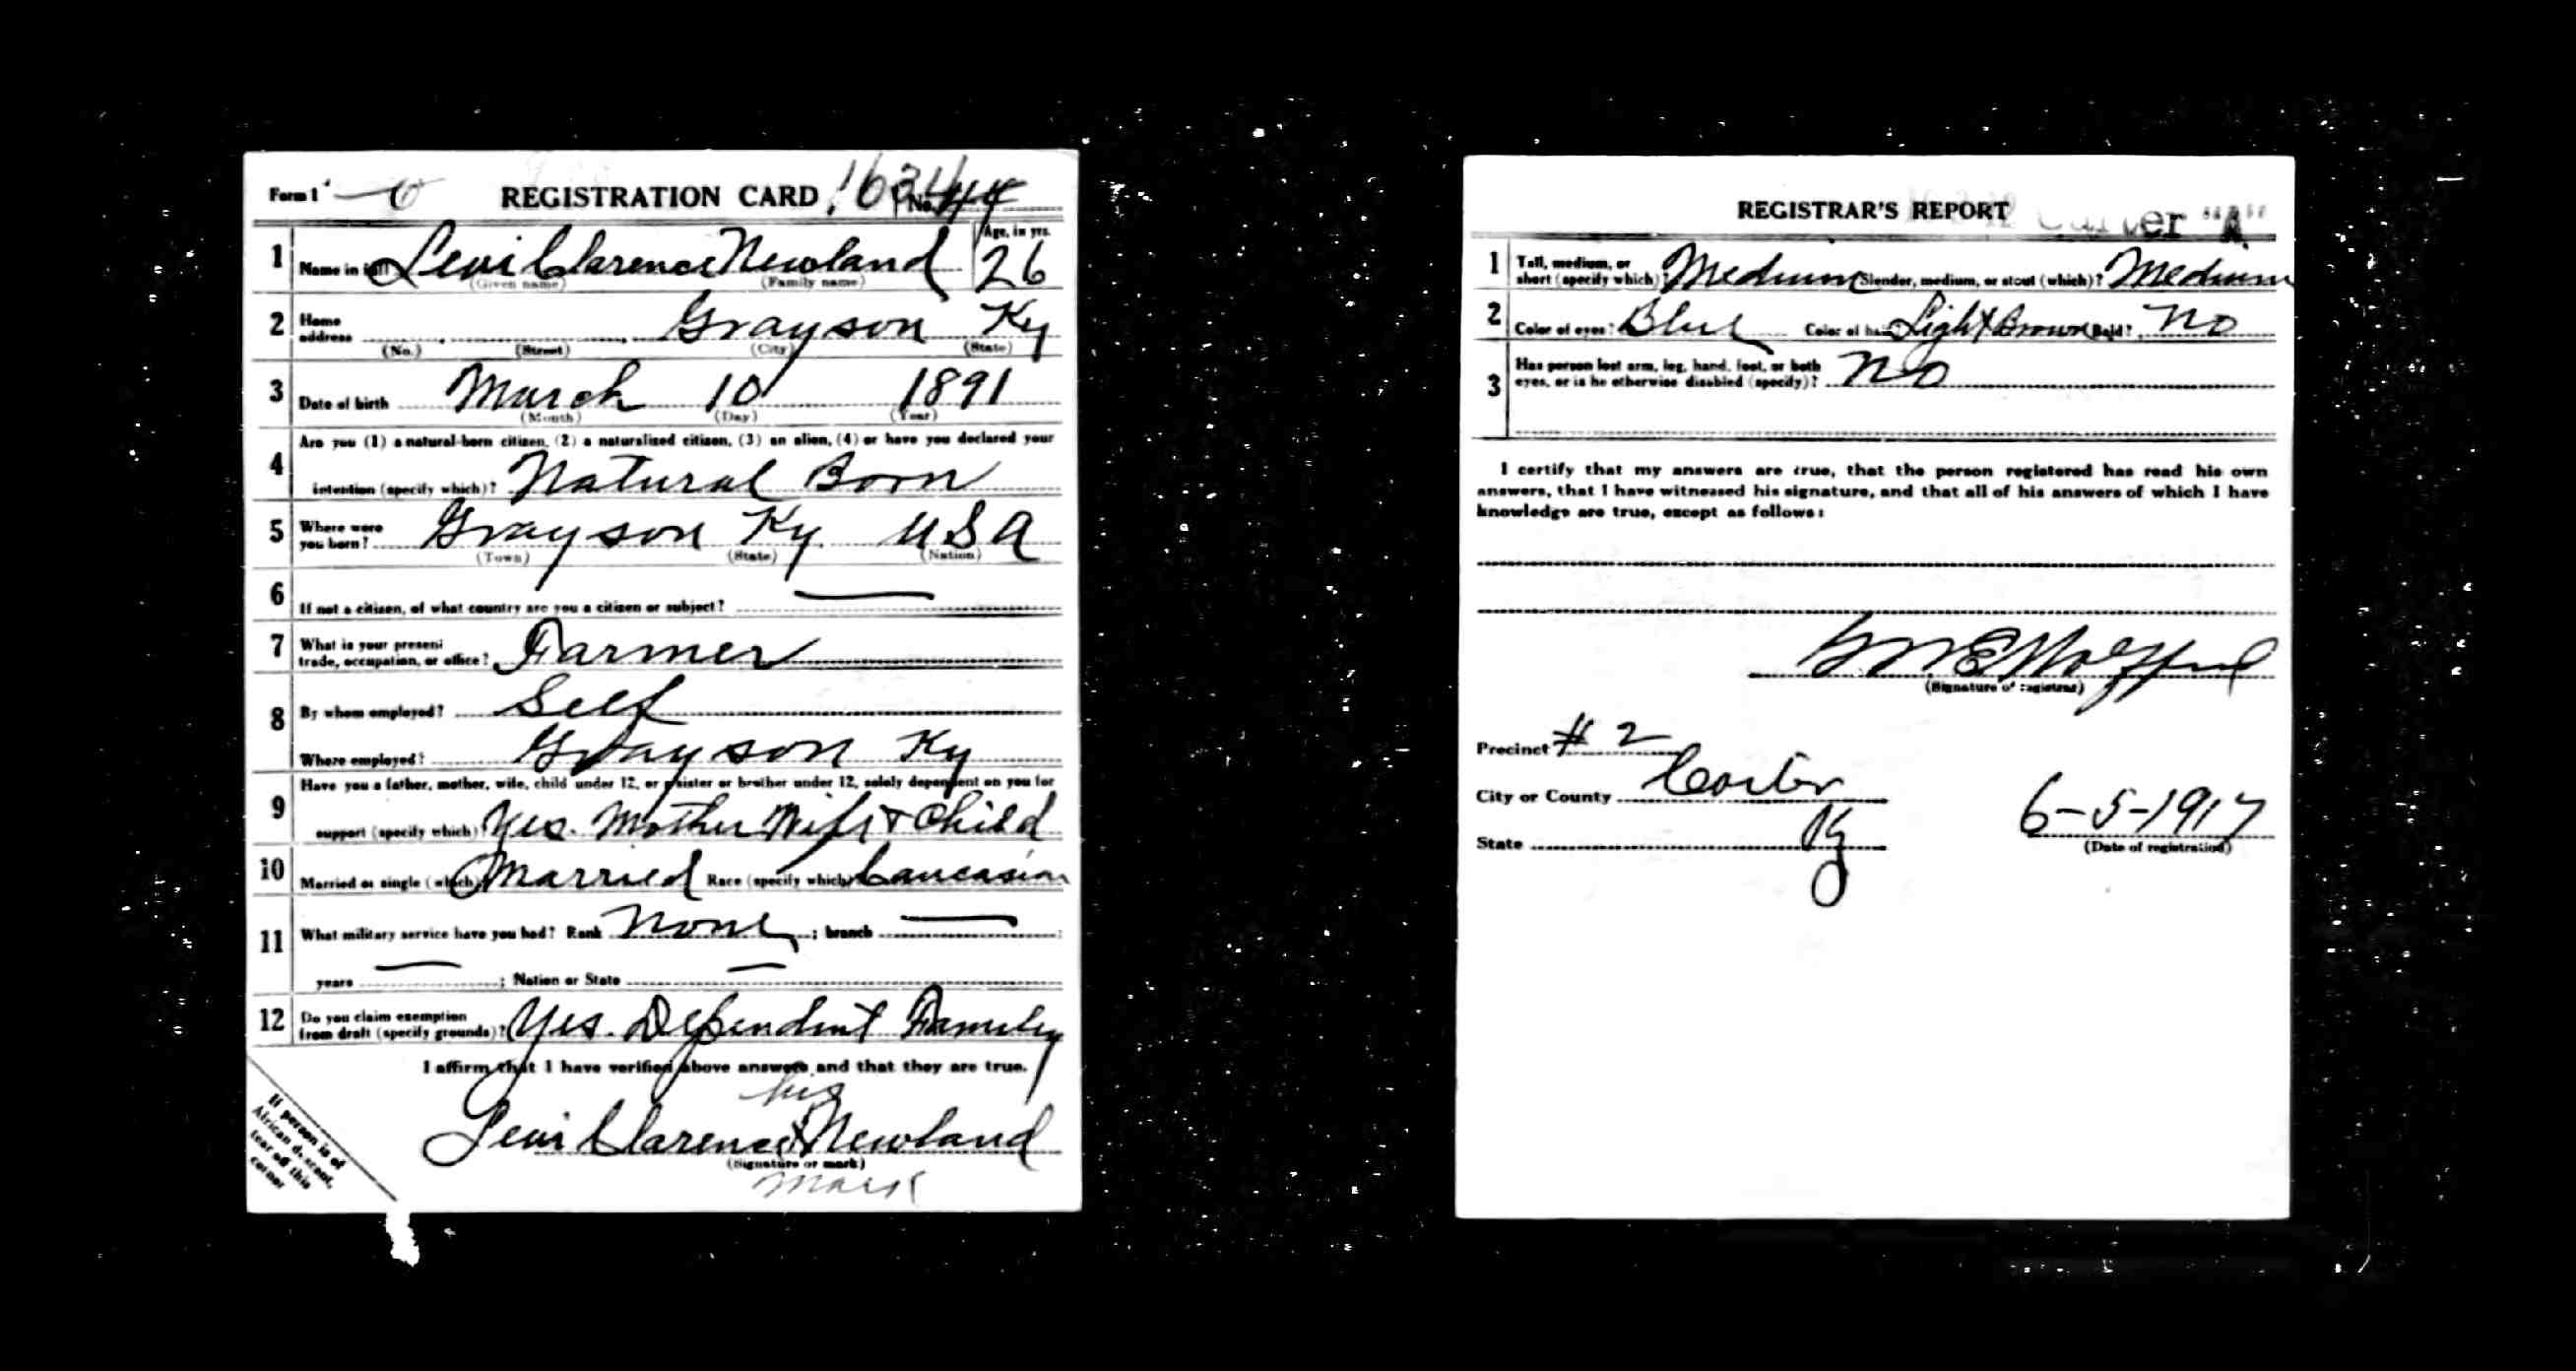 Form 1 REGISTRATION CARD No. 44
1 Name in full Levi Clarence Newland Age, in yrs. 26
(Given name) (Family name)
2 Home address Grayson Ky
(No.) (Street) (City) (State)
3 Date of birth March 10 1891
(Month) (Day) (Year)
4 Are you (1) a natural-born citizen, (2) a naturalized citizen, (3) an alien, (4) or have you declared your
intention (specify which)? Natural Born
5 Where were you born? Grayson Ky. USA
(Town) (State) (Nation)
6 If not a citizen, of what country are you a citizen or subject? —
7 What is your present trade, occupation, or office? Farmer
8 By whom employed? Self
Where employed? Grayson Ky
9 Have you a father, mother, wife, child under 12, or a sister or brother under 12, solely dependent on you for
support (specify which)? Yes. Mother Wife + Child
10 Married or single (which)? Married Race (specify which)? Caucasian
11 What military service have you had? Rank None ; branch — ;
years — ; Nation or State —
12 Do you claim exemption from draft (specify grounds)? Yes. Dependent Family
I affirm that I have verified above answers and that they are true.
his
Levi Clarence X Newland
(Signature or mark)
mark
If person is of
African descent,
tear off this
corner
REGISTRAR'S REPORT "A"
1 Tall, medium, or short (specify which)? Medium Slender, medium, or stout (which)? Medium
2 Color of eyes? Blue Color of hair? Light Brown Bald? No
3 Has person lost arm, leg, hand, foot, or both
eyes, or is he otherwise disabled (specify)? No
I certify that my answers are true, that the person registered has read his own
answers, that I have witnessed his signature, and that all of his answers of which I have
knowledge are true, except as follows:
(Signature of registrar)
Precinct # 2
City or County Carter
State Ky
6-5-1917
(Date of registration)